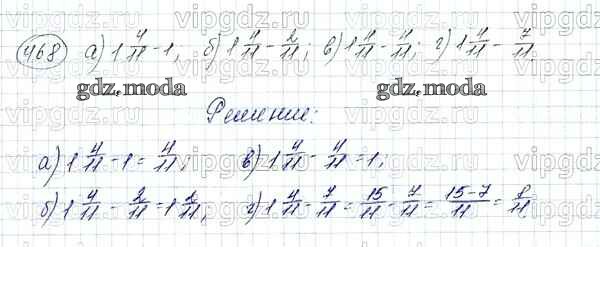 vipgdz.ru vipgdz.ru vipgdz.ru
468 а) 1 4/11 - 1; б) 1 4/11 - 2/11; в) 1 4/11 - 4/11; г) 1 4/11 - 7/11.
gdz.moda gdz.moda
Решение:
а) 1 4/11 - 1 = 4/11; в) 1 4/11 - 4/11 = 1;
б) 1 4/11 - 2/11 = 1 2/11; г) 1 4/11 - 7/11 = 15/11 - 7/11 = (15-7)/11 = 8/11.